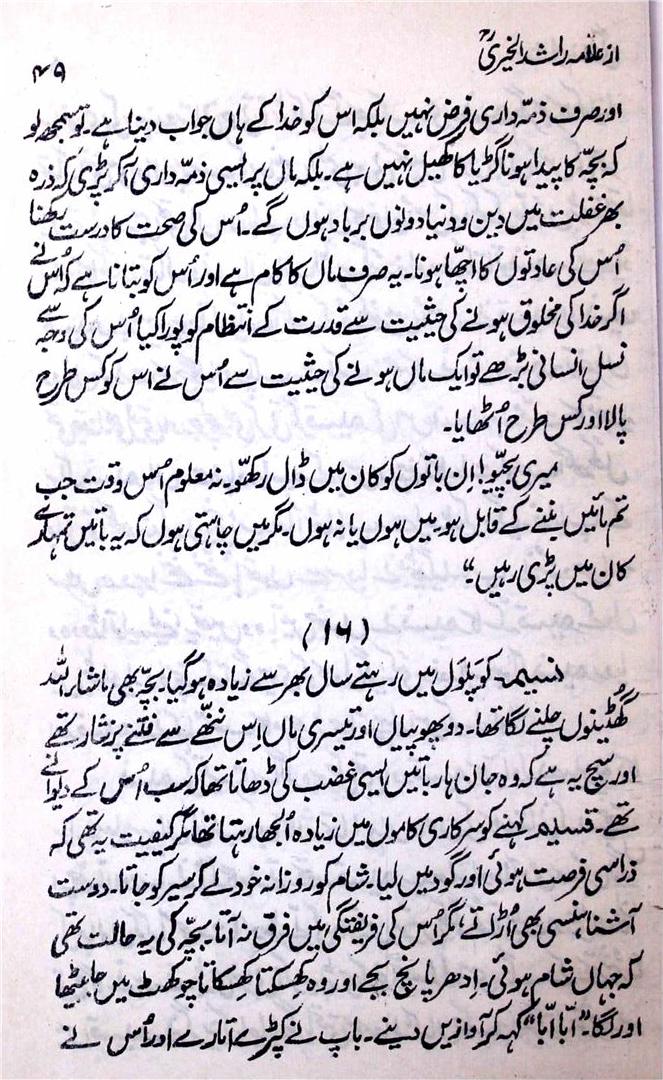 از علامہ راشد الخیریؒ
۴۹
اور صرف ذمّہ داری فرض نہیں بلکہ اس کو خدا کے ہاں جواب دینا ہے۔ لو سمجھ لو
کہ بچّہ کا پیدا ہونا گڑیا کا کھیل نہیں ہے۔ بلکہ ماں پر ایسی ذمّہ داری آ کر پڑی کہ ذرہ
بھر غفلت میں دین و دنیا دونوں برباد ہوں گے۔ اُس کی صحت کا درست رکھنا
اُس کی عادتوں کا اچھّا ہونا۔ یہ صرف ماں کا کام ہے اور اُس کو بتانا ہے کہ اُس نے
اگر خدا کی مخلوق ہونے کی حیثیت سے قدرت کے انتظام کو پورا کیا اُس کی وجہ سے
نسل انسانی بڑھے تو ایک ماں ہونے کی حیثیت سے اُس نے اس کو کس طرح
پالا اور کس طرح اُٹھایا۔
میری بچیّو! اِن باتوں کو کان میں ڈال رکھّو۔ نہ معلوم اُس وقت جب
تم مائیں بننے کے قابل ہو۔ میں ہوں یا نہ ہوں۔ مگر میں چاہتی ہوں کہ یہ باتیں تمہارے
کان میں پڑی رہیں۔"
(۱۶)
نسیمہ کو پلول میں رہتے سال بھر سے زیادہ ہو گیا۔ بچّہ بھی ماشاءاللہ
گھُٹینوں چلنے لگا تھا۔ دو پھوپیاں اور تیسری ماں اِس ننھّے سے فتنے پر نثار تھے
اور سچ یہ ہے کہ وہ جان ہار باتیں ایسی غضب کی ڈھاتا تھا کہ سب اُس کے دیوانے
تھے۔ قسیم کہنے کو سرکاری کاموں میں زیادہ اُلجھا رہتا تھا مگر کیفیت یہ تھی کہ
ذرا سی فرصت ہوئی اور گود میں لیا۔ شام کو روزانہ خود لے کر سیر کو جاتا۔ دوست
آشنا ہنسی بھی اُڑاتے، مگر اُس کی فریفتگی میں فرق نہ آتا بچّہ کی یہ حالت تھی
کہ جہاں شام ہوئی۔ اِدھر پانچ بجے اور وہ کھِسکتا کھِسکاتا چوکھٹ میں جا بیٹھا
اور لگا۔ "ابّا ابّا" کہہ کر آوازیں دینے۔ باپ نے کپڑے اُتارے اور اُس نے